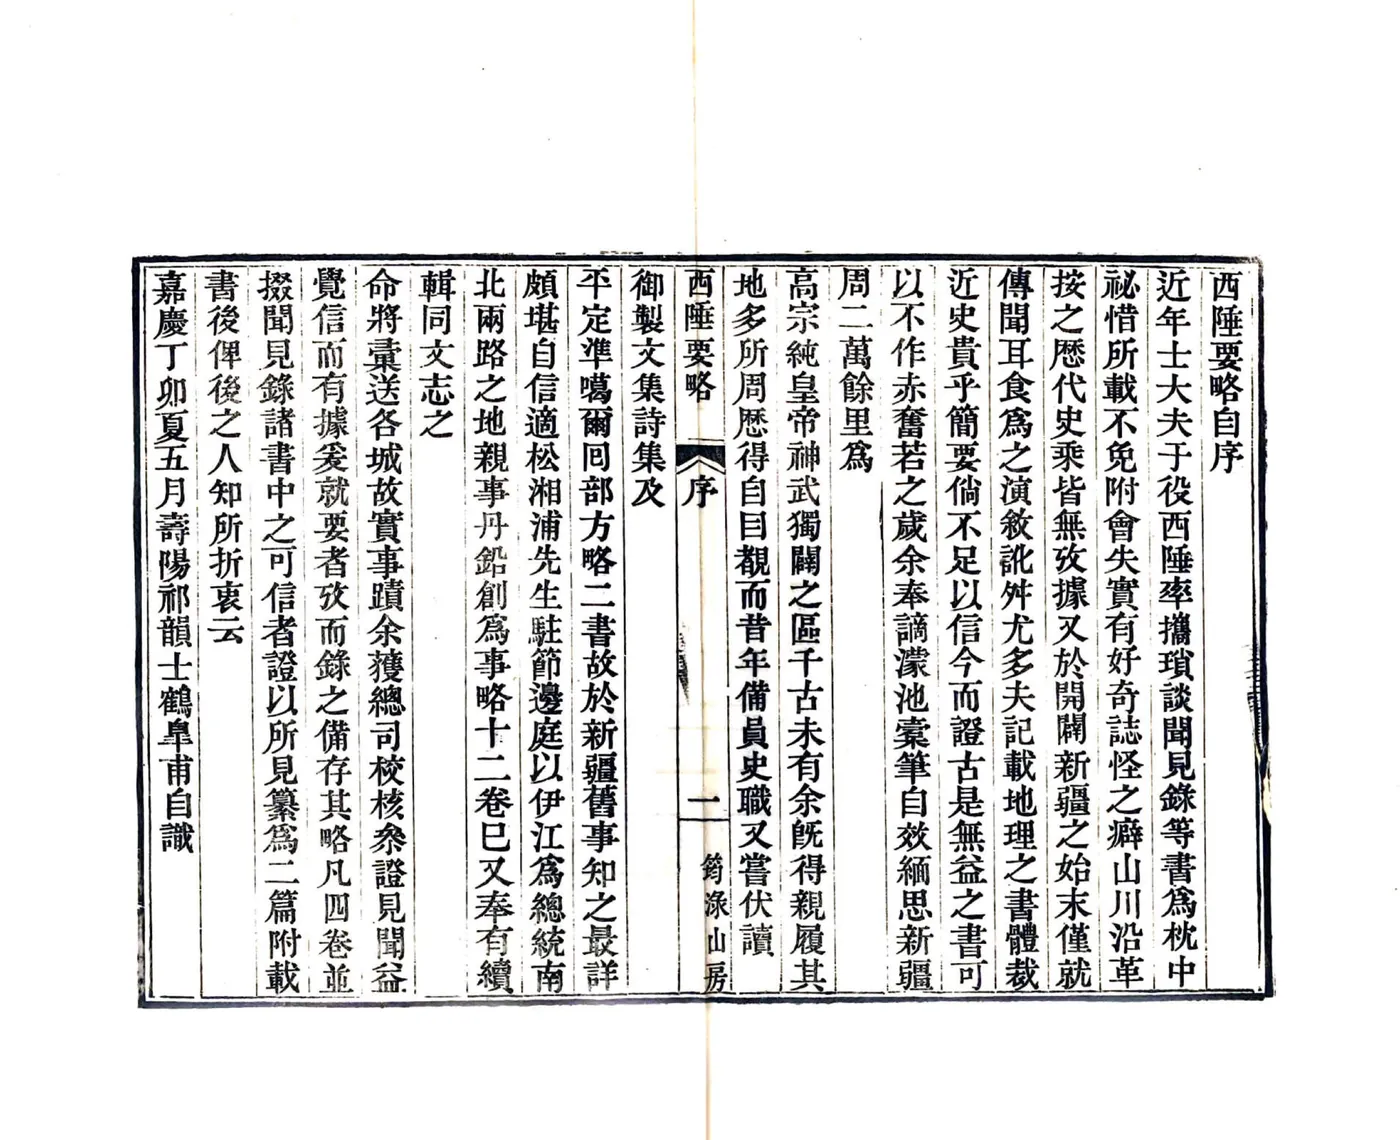 西陲要略自序
近年士大夫于役西陲率攜瑣談聞見錄等書爲枕中
祕惜所載不免附會失實有好奇誌怪之癖山川沿革
按之歷代史乘皆無攷據又於開闢新疆之始末僅就
傳聞耳食爲之演敘訛舛尤多夫記載地理之書體裁
近史貴乎簡要倘不足以信今而證古是無益之書可
以不作赤奮若之歲余奉謫濛池橐筆自效緬思新疆
周二萬餘里爲
高宗純皇帝神武獨闢之區千古未有余旣得親履其
地多所周歷得自目覩而昔年備員史職又嘗伏讀
西陲要略 序 二 筠淥山房
御製文集詩集及
平定準噶爾回部方略二書故於新疆舊事知之最詳
頗堪自信適松湘浦先生駐節邊庭以伊江爲總統南
北兩路之地親事丹鉛創爲事略十二卷巳又奉有續
輯同文志之
命將彙送各城故實事蹟余獲總司校核叅證見聞益
覺信而有據爰就要者攷而錄之備存其略凡四卷並
掇聞見錄諸書中之可信者證以所見纂爲二篇附載
書後俾後之人知所折衷云
嘉慶丁卯夏五月壽陽祁韻士鶴皐甫自識